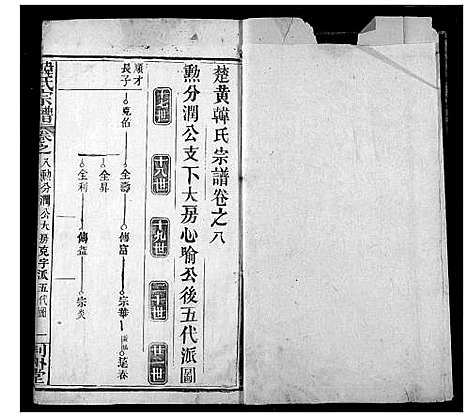 楚黄韓氏宗譜卷之八
勲分潤公支下大房心喻公後五代派圖
十七世
十八世
十九世
二十世
廿一世
順才
長子
克伯
全壽
傳富
宗華
全昇
全利
傳益
宗炎
韓氏宗譜
卷之八勲分潤公大房克字派五代圖
一